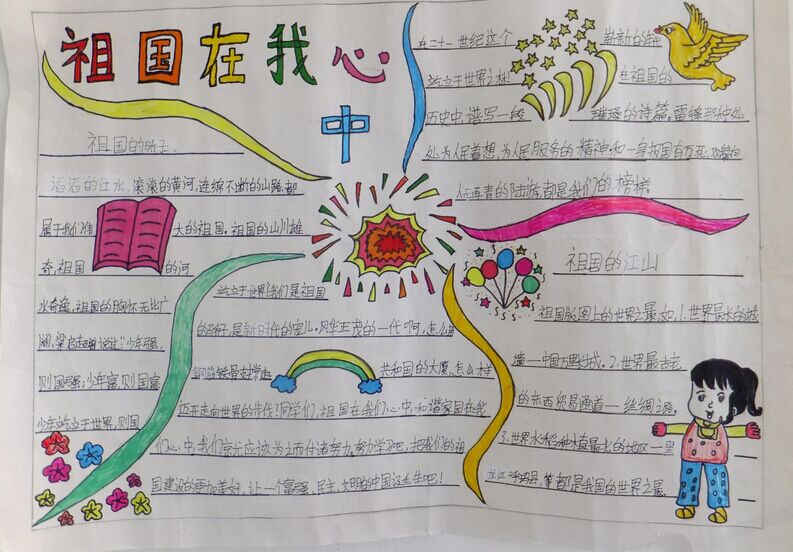 祖国在我心
中
祖国的骄子
滔滔的江水,滚滚的黄河,连绵不断的山路,都
属于我们 大的祖国。祖国的山川雄
奇,祖国 的河
水奇 祖国的胸怀无比广
阔,梁启超曾说过:"少年强,
则国强;少年富,则国富
少年站立于世界,则国
站立于世界!我们是祖国
的骄子,是新时代的宠儿。风华正茂的一代啊,怎么用
钢筋铁骨支撑起 共和国的大厦,怎么样
迈开走向世界的步伐?同学们,祖国在我们心中,和谐家园在我
们心中,我们 应该为之而付诸努力。努力学习吧,把我们的祖
国建设的更加美好,让一个富强、民主、文明的中国 生吧!
在二十一世纪这个 崭新的
站立于世界之林 在祖国的
历史中,谱写一段 的诗篇。雷锋那种处
处为人民着想,为人民服务的精神,和一身报国有万死,
人无再青的陆游,都是我们的榜样。
祖国的江山
祖国版图上的世界之最如,1.世界最长的城
墙—中国万里长城。2.世界最古老
的东西贸易通道—丝绸之路。
3.世界水稻种植最北的地区—黑
龙江呼玛县,等都是我国的世界之最